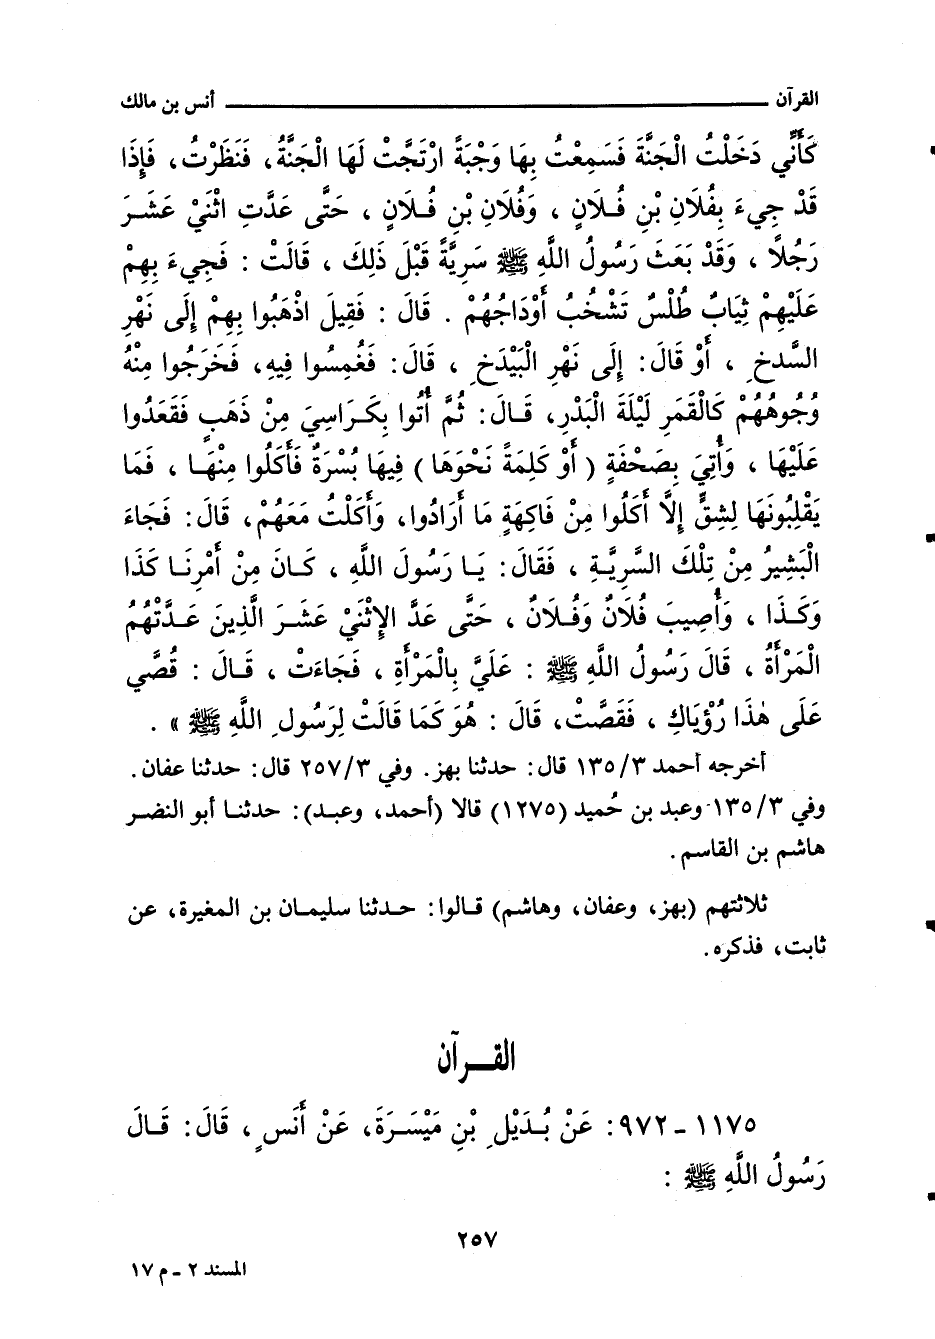 القرآن ــــــــــــــــ أنس بن مالك
كَأَنِّي دَخَلْتُ الْجَنَّةَ فَسَمِعْتُ بِهَا وَجْبَةً ارْتَجَّتْ لَهَا الْجَنَّةُ، فَنَظَرْتُ، فَإِذَا
قَدْ جِيءَ بِفُلَانِ بْنِ فُلَانٍ ، وَفُلَانِ بْنِ فُلَانٍ ، حَتَّى عَدَّتِ اثْنَيْ عَشَرَ
رَجُلًا ، وَقَدْ بَعَثَ رَسُولُ اللَّهِ ﷺ سَرِيَّةً قَبْلَ ذَلِكَ ، قَالَتْ : فَجِيءَ بِهِمْ
عَلَيْهِمْ ثِيَابٌ طُلْسٌ تَشْخُبُ أَوْدَاجُهُمْ . قَالَ : فَقِيلَ اذْهَبُوا بِهِمْ إِلَى نَهْرِ
السَّدخِ ، أَوْ قَالَ : إِلَى نَهْرِ الْبَيْدَخِ ، قَالَ : فَغُمِسُوا فِيهِ، فَخَرَجُوا مِنْهُ
وُجُوهُهُمْ كَالْقَمَرِ لَيْلَةَ الْبَدْرِ، قَالَ : ثُمَّ أُتُوا بِكَرَاسِيَ مِنْ ذَهَبٍ فَقَعَدُوا
عَلَيْهَا ، وَأُتِيَ بِصَحْفَةٍ ( أَوْ كَلِمَةً نَحْوَهَا ) فِيهَا بُسْرَةٌ فَأَكَلُوا مِنْهَا ، فَمَا
يَقْلِبُونَهَا لِشِقٍّ إِلَّا أَكَلُوا مِنْ فَاكِهَةٍ مَا أَرَادُوا، وَأَكَلْتُ مَعَهُمْ، قَالَ : فَجَاءَ
الْبَشِيرُ مِنْ تِلْكَ السَّرِيَّةِ ، فَقَالَ : يَا رَسُولَ اللَّهِ ، كَانَ مِنْ أَمْرِنَا كَذَا
وَكَذَا ، وَأُصِيبَ فُلَانٌ وَفُلَانٌ ، حَتَّى عَدَّ الإِثْنَيْ عَشَرَ الَّذِينَ عَدَّتْهُمُ
الْمَرْأَةُ ، قَالَ رَسُولُ اللَّهِ ﷺ : عَلَيَّ بِالْمَرْأَةِ ، فَجَاءَتْ ، قَالَ : قُصِّي
عَلَى هٰذَا رُؤْيَاكِ ، فَقَصَّتْ، قَالَ : هُوَ كَمَا قَالَتْ لِرَسُولِ اللَّهِ ﷺ » .
أخرجه أحمد ١٣٥/٣ قال: حدثنا بهز. وفي ٢٥٧/٣ قال: حدثنا عفان.
وفي ١٣٥/٣ وعبد بن حُميد (١٢٧٥) قالا (أحمد، وعبد): حدثنا أبو النضر
هاشم بن القاسم.
ثلاثتهم (بهز، وعفان، وهاشم) قالوا: حدثنا سليمان بن المغيرة، عن
ثابت، فذكره.
القـــرآن
١١٧٥ - ٩٧٢: عَنْ بُدَيْلِ بْنِ مَيْسَرَةَ، عَنْ أَنَسٍ ، قَالَ: قَالَ
رَسُولُ اللَّهِ ﷺ :
٢٥٧
المسند ٢ - م ١٧